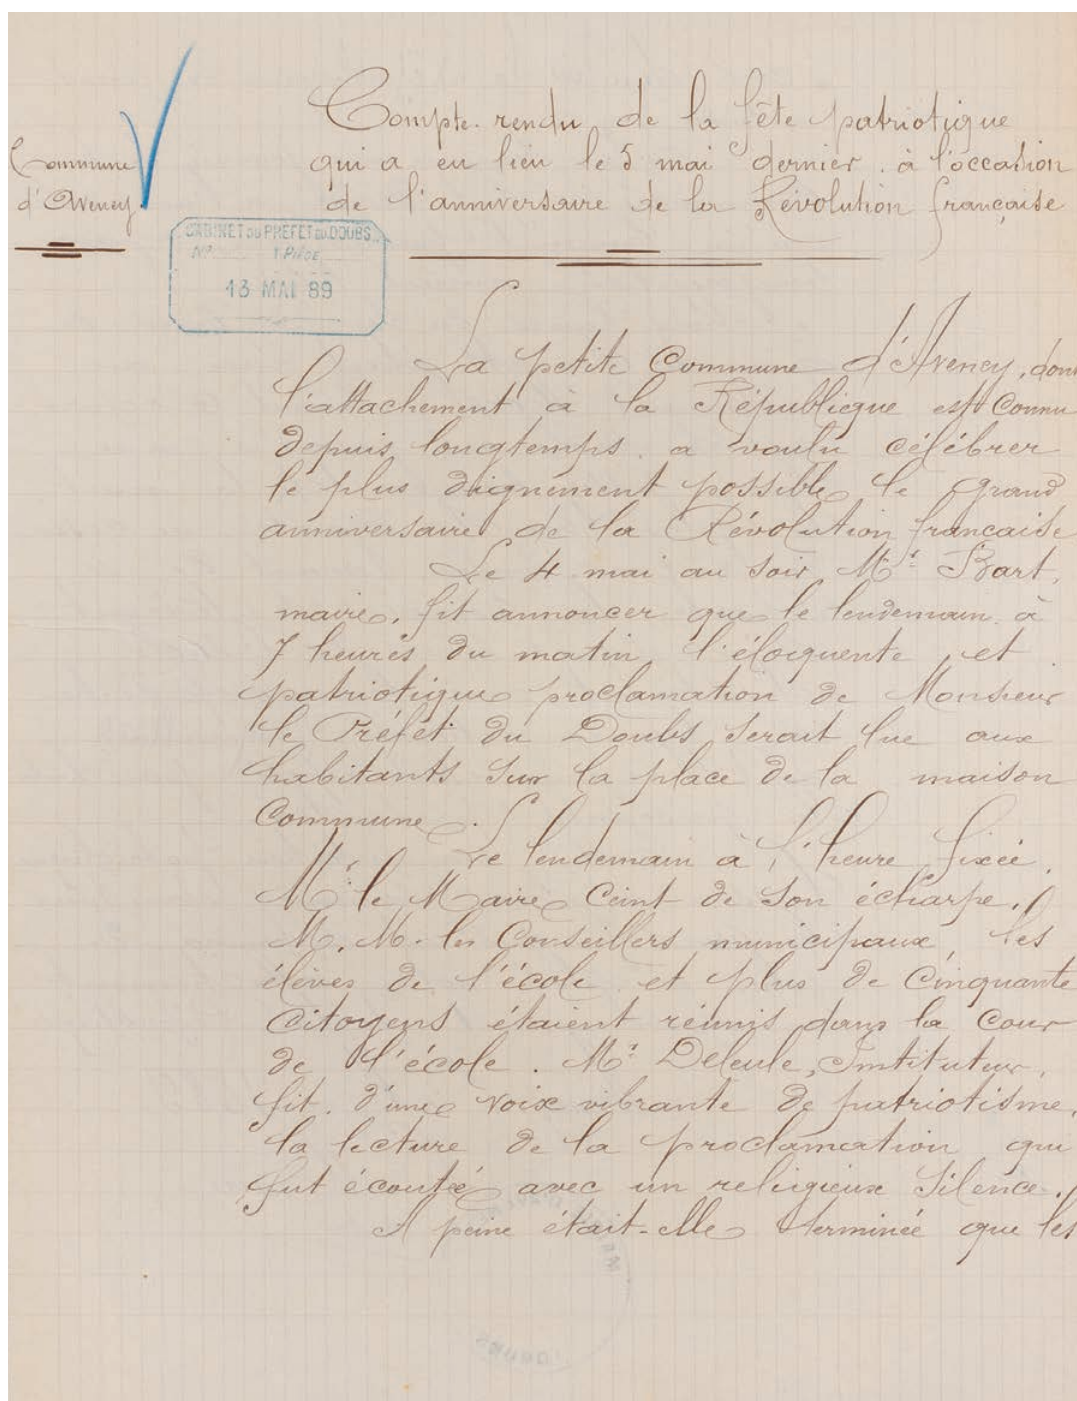 Compte-rendu de la fête patriotique
qui a eu lieu le 5 mai dernier. à l'occasion
de l'anniversaire de la Révolution française
Commune
d'Aveney.
CABINET DU PREFET DU DOUBS
No. 1 Pièce
13 MAI 89
La petite Commune d'Aveney, dont
l'attachement à la République est Connu
depuis longtemps, a voulu célébrer
le plus dignement possible le grand
anniversaire de la Révolution française
Le 4 mai au soir, Mr. Bart,
maire, fit annoncer que le lendemain à
7 heures du matin l'éloquente et
patriotique proclamation de Monsieur
le Préfet du Doubs serait lue aux
habitants sur la place de la maison
Commune.
Le lendemain à l'heure fixée,
Mr. le Maire Ceint de son écharpe,
M. M. les Conseillers municipaux, les
élèves de l'école et plus de Cinquante
Citoyens étaient réunis dans la Cour
de l'école. Mr. Deleule, Instituteur,
fit, d'une voix vibrante de patriotisme,
la lecture de la proclamation qui
fut écoutée avec un religieux silence.
A peine était-elle terminée que les